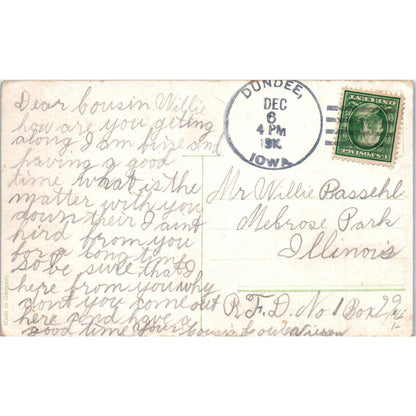 Dear Cousin Willie
how are you geting
along I am fine and
having a good
time what is the
matter with you
down their I aint
hird from you
for a long time
so be sure that I
here from you why
dont you come out
here and have a
good time Your Cousin
DUNDEE,
DEC
6
4 PM
IOWA
Mr Willie Passehl
Melrose Park
Illinois
R.F.D. No 1 Box 29
Made in Germany